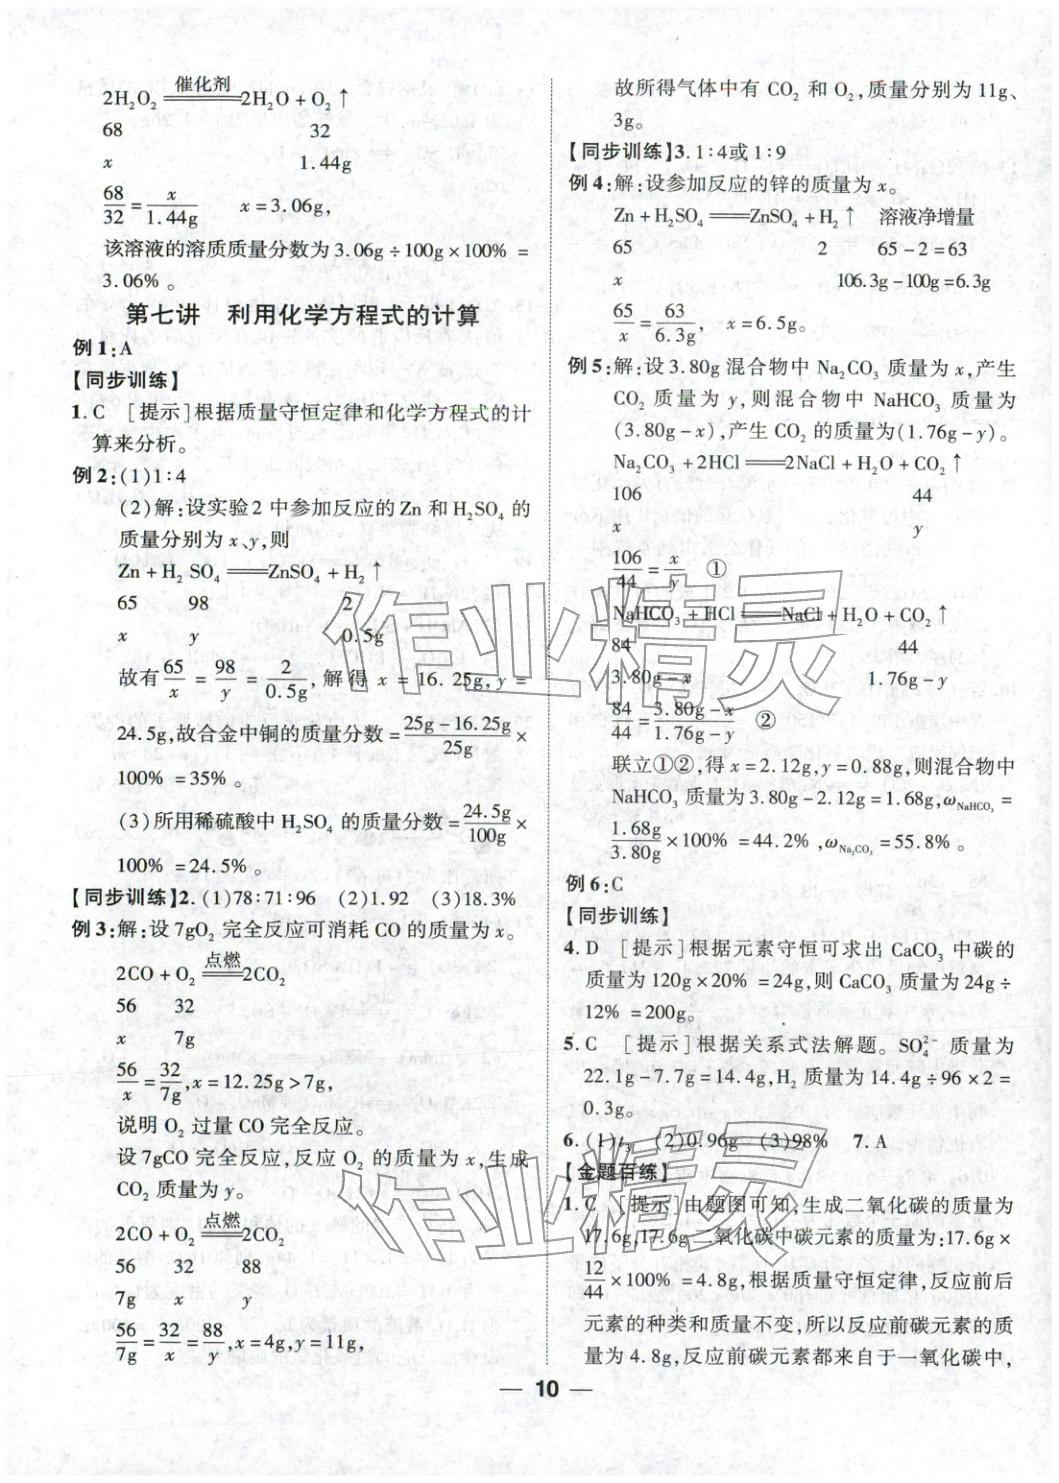 催化剂
2H₂O₂═══2H₂O+O₂↑
68 32
x 1.44g
68/32=x/1.44g x=3.06g,
该溶液的溶质质量分数为3.06g÷100g×100% =
3.06% 。
第七讲 利用化学方程式的计算
例1:A
【同步训练】
1.C [提示]根据质量守恒定律和化学方程式的计
算来分析。
例2:(1)1:4
(2)解:设实验2中参加反应的Zn和H₂SO₄的
质量分别为x、y,则
Zn+H₂ SO₄═══ZnSO₄+H₂↑
65 98 2
x y 0.5g
故有65/x=98/y=2/0.5g,解得x=16.25g,y=
24.5g,故合金中铜的质量分数=(25g-16.25g)/25g×
100% =35% 。
(3)所用稀硫酸中H₂SO₄的质量分数=24.5g/100g×
100% =24.5% 。
【同步训练】2.(1)78:71:96 (2)1.92 (3)18.3%
例3:解:设7gO₂完全反应可消耗CO的质量为x。
点燃
2CO+O₂═══2CO₂
56 32
x 7g
56/x=32/7g,x=12.25g>7g,
说明O₂过量CO完全反应。
设7gCO完全反应,反应O₂的质量为x,生成
CO₂质量为y。
点燃
2CO+O₂═══2CO₂
56 32 88
7g x y
56/7g=32/x=88/y,x=4g,y=11g,
故所得气体中有CO₂和O₂,质量分别为11g、
3g。
【同步训练】3.1:4或1:9
例4:解:设参加反应的锌的质量为x。
Zn+H₂SO₄═══ZnSO₄+H₂↑ 溶液净增量
65 2 65-2=63
x 106.3g-100g=6.3g
65/x=63/6.3g, x=6.5g。
例5:解:设3.80g混合物中Na₂CO₃质量为x,产生
CO₂质量为y,则混合物中NaHCO₃质量为
(3.80g-x),产生CO₂的质量为(1.76g-y)。
Na₂CO₃+2HCl═══2NaCl+H₂O+CO₂↑
106 44
x y
106/44=x/y ①
NaHCO₃+HCl═══NaCl+H₂O+CO₂↑
84 44
3.80g-x 1.76g-y
84/44=(3.80g-x)/(1.76g-y) ②
联立①②,得x=2.12g,y=0.88g,则混合物中
NaHCO₃质量为3.80g-2.12g=1.68g,ω_NaHCO₃=
1.68g/3.80g×100% =44.2% ,ω_Na₂CO₃=55.8% 。
例6:C
【同步训练】
4.D [提示]根据元素守恒可求出CaCO₃中碳的
质量为120g×20% =24g,则CaCO₃质量为24g÷
12% =200g。
5.C [提示]根据关系式法解题。SO₄²⁻质量为
22.1g-7.7g=14.4g,H₂质量为14.4g÷96×2=
0.3g。
6.(1)t₃ (2)0.96g (3)98% 7.A
【金题百练】
1.C [提示]由题图可知,生成二氧化碳的质量为
17.6g,17.6g二氧化碳中碳元素的质量为:17.6g×
12/44×100% =4.8g,根据质量守恒定律,反应前后
元素的种类和质量不变,所以反应前碳元素的质
量为4.8g,反应前碳元素都来自于一氧化碳中,
— 10 —
作业精灵
作业精灵